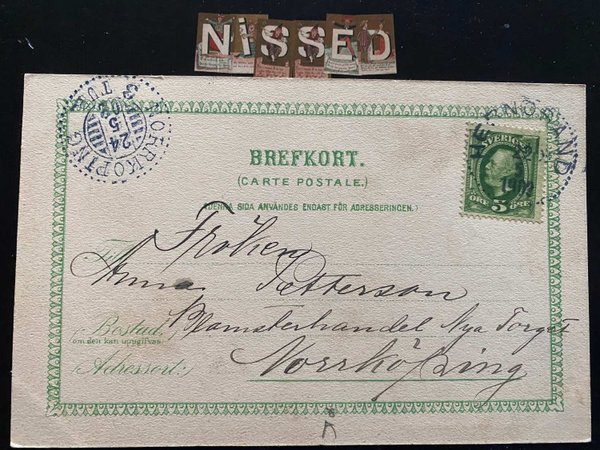 NiSSED
NORRKÖPING
3 TUR
24
5
BREFKORT.
(CARTE POSTALE.)
(DENNA SIDA ANVÄNDES ENDAST FÖR ADRESSERINGEN.)
SVERIGE
5
ÖRE ÖRE
HERNÖSAND
Fröken
Anna Petterson
Blomsterhandel Nya Torget
Bostad:
om den kan uppgifvas
Norrköping
Adressort: